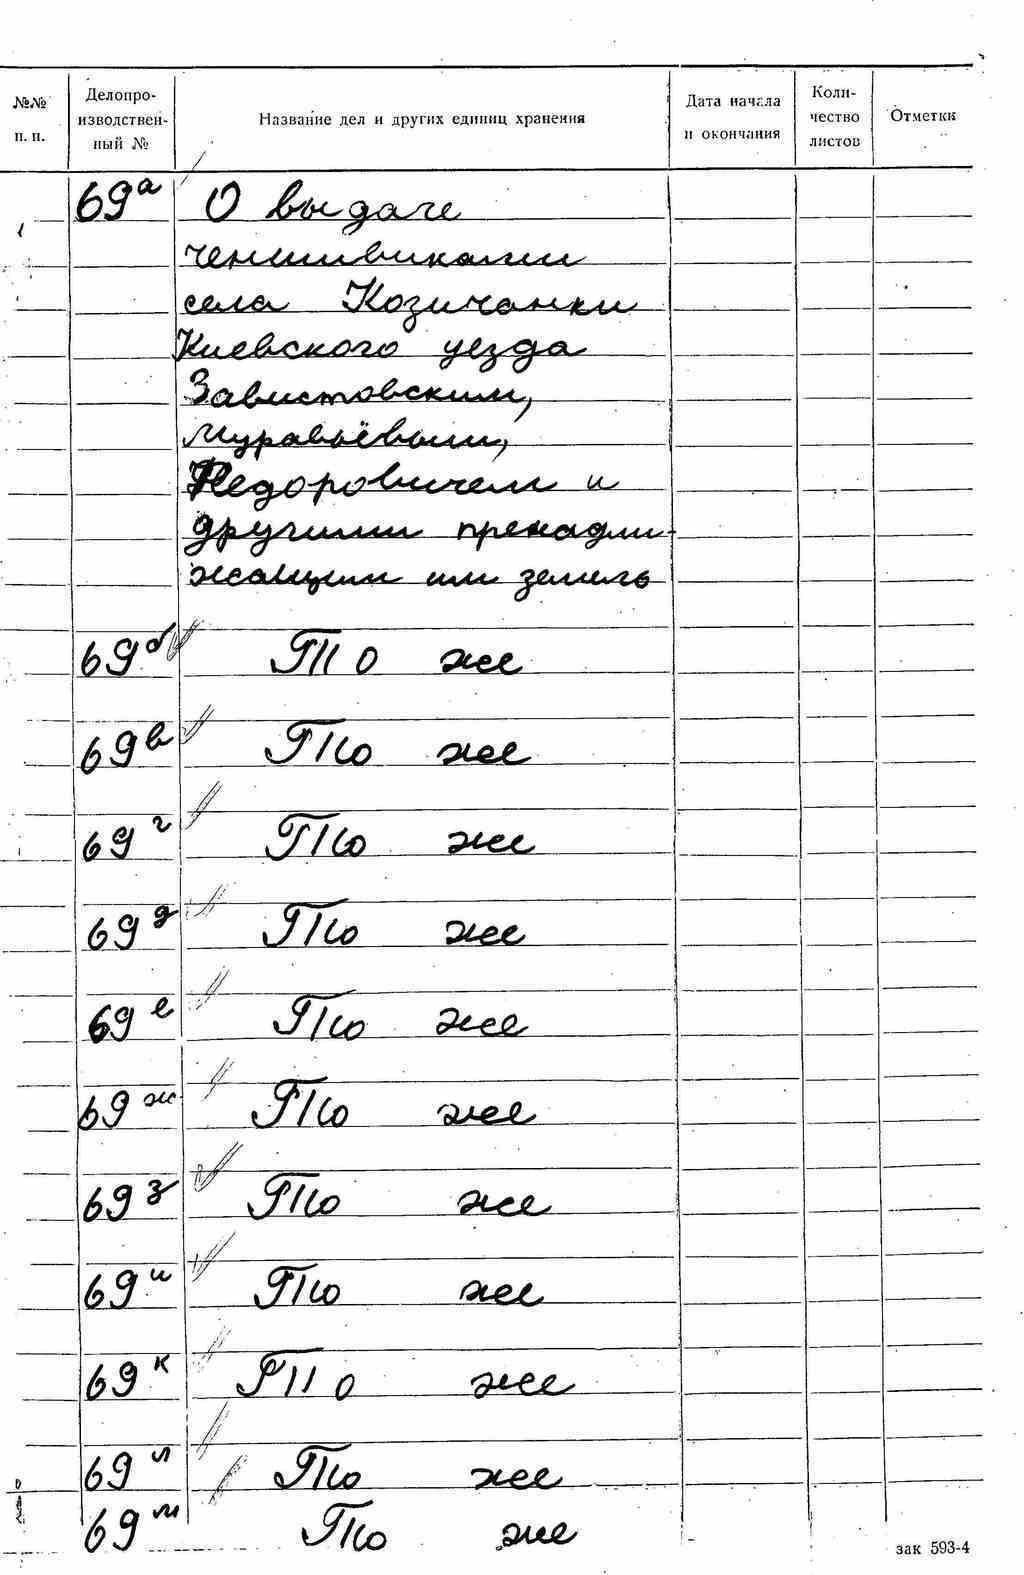 №№ п. п. Делопроизводственный № Название дел и других единиц хранения Дата начала и окончания Количество листов Отметки
69а О выдаче
чиншевиками
села Козичанки
Киевского уезда
Завистовским,
Муравьёвым,
Федоровичем и
другими принадле-
жащим им земель
69б То же
69в То же
69г То же
69д То же
69е То же
69ж То же
69з То же
69и То же
69к То же
69л То же
69м То же
зак 593-4